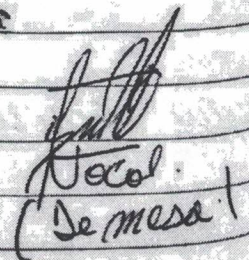 Vocal.
(De mesa.)